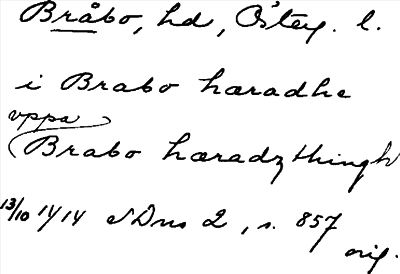 Bråbo, hd, Östeg. l.
i Brabo hæradhe
vppa
Brabo hæradz thingh
13/10 1414 SDns 2, s. 857
orig.